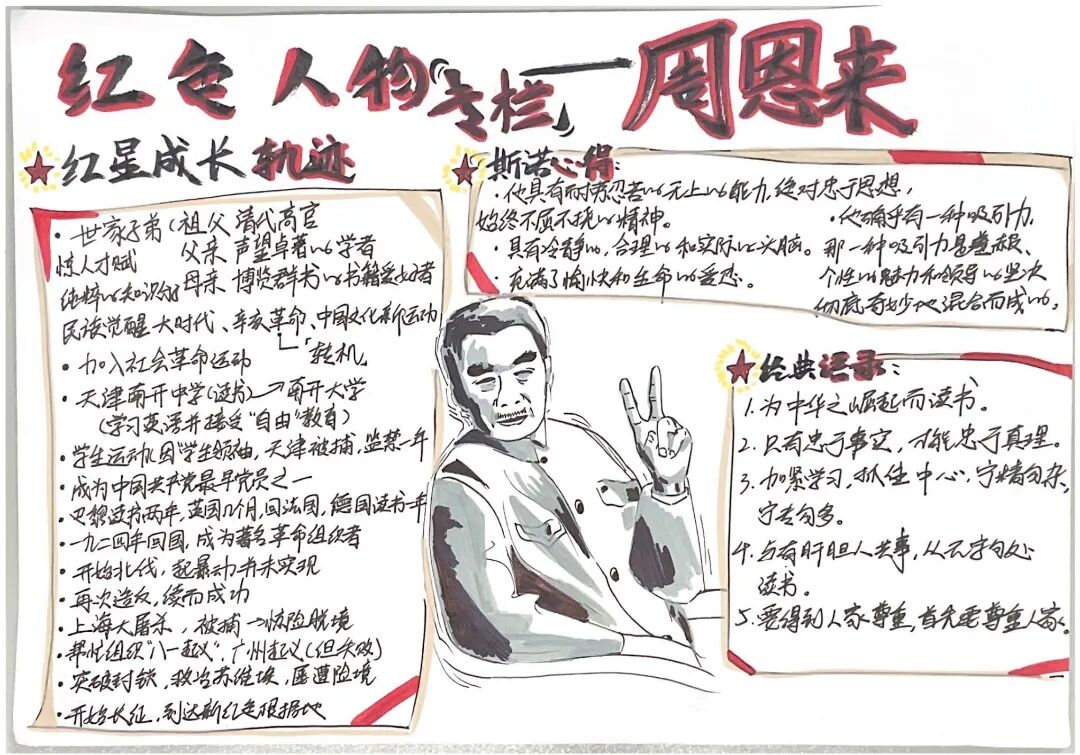 红色人物「专栏」——周恩来
红星成长轨迹
·世家子弟(祖父 清代高官
惊人才赋 父亲 声望卓著的学者
纯粹的知识分子 母亲 博览群书的书籍爱好者
民族觉醒 大时代、辛亥革命、中国文化新运动
「转机」
·加入社会革命运动
·天津南开中学(读书)→南开大学
(学习英语并接受“自由”教育)
·学生运动,因“学生领袖,天津被捕,监禁一年
·成为中国共产党最早党员之一
·巴黎读书两年,英国几个月,回法国,德国读书一年
·一九二四年回国,成为著名革命组织者
·开始北伐,起暴动 并未实现
·再次造反,续而成功
·上海大屠杀,被捕→惊险脱境
·帮忙组织“八一起义”,广州起义(但失败)
·突破封锁,救治苏维埃,匿遭险境
·开始长征,到达新红色根据地
斯诺心得:
·他具有耐劳忍苦的无上的能力,绝对忠于思想,
始终不屈不挠的精神。
·具有冷静的,合理的和实际的头脑。
·充满了愉快和生命的爱恋。
·他确乎有一种吸引力,
那一种吸引力是羞涩,
个性的魅力和领导的坚决
彻底奇妙地混合而成的。
经典语录:
1.为中华之崛起而读书。
2.只有忠于事实,才能忠于真理。
3.加紧学习,抓住中心,宁精勿杂,
宁专勿多。
4.与有肝胆人共事,从无字句处
读书。
5.要得到人家尊重,首先要尊重人家。